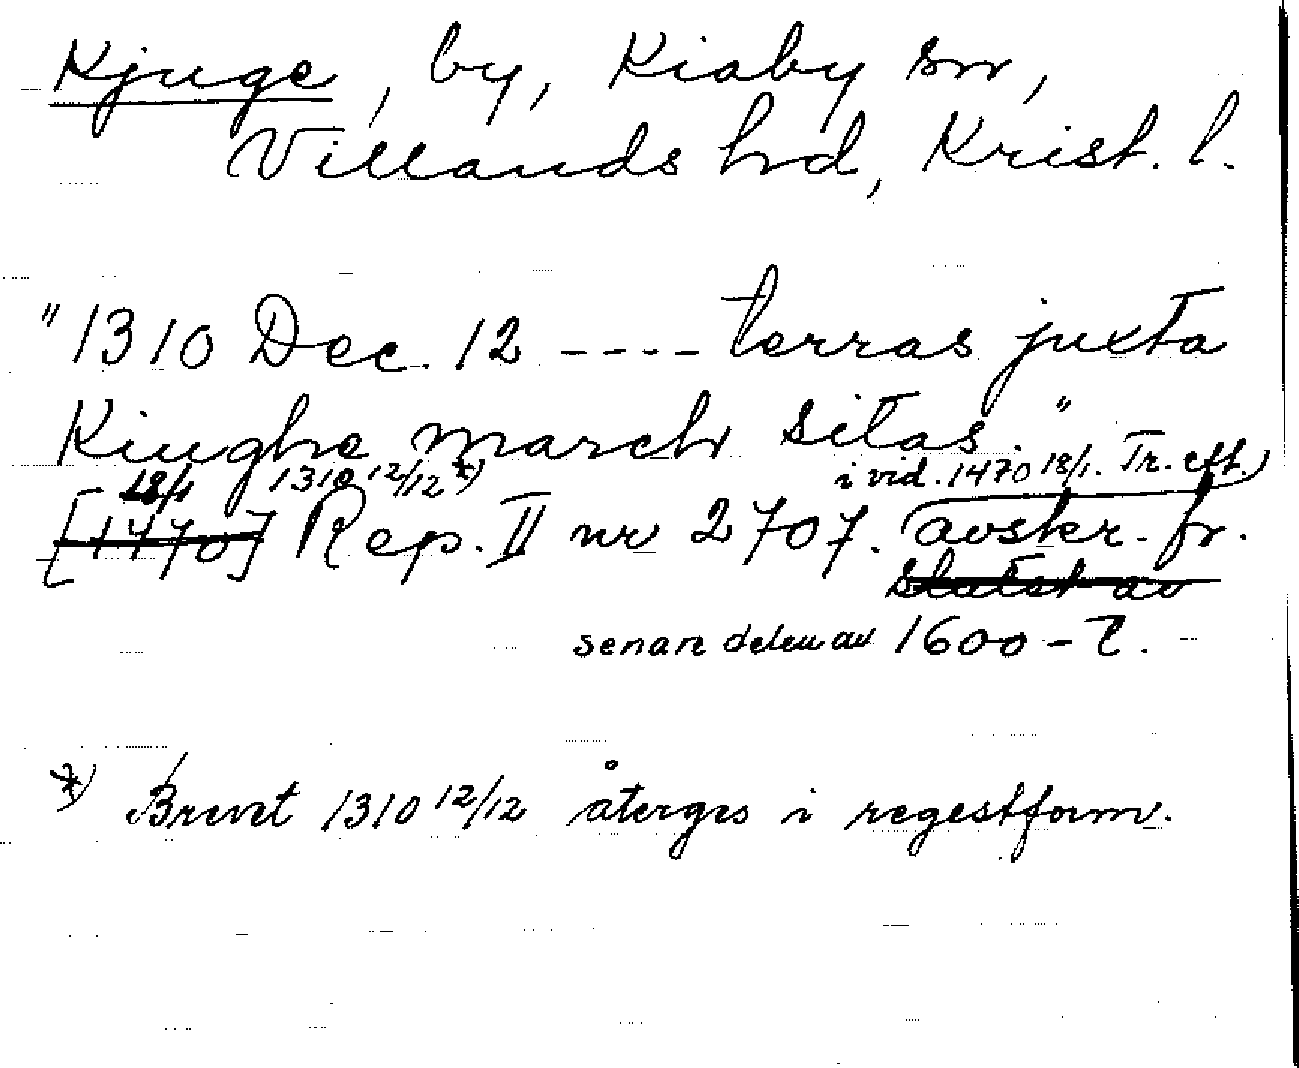 Kjuge, by, Kiaby sn,
Villands hd, Krist. l.
"1310 Dec. 12 ---- terras juxta
Kiughe march sitas."
18/1 1310 12/12 *) i vid. 1470 18/1. Tr. eft.
[1470] Rep. II nr 2707. avskr. fr.
slutet av
senare delen av 1600-t.
*) Brevet 1310 12/12 återges i regestform.